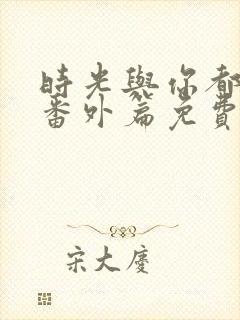 時光與你都
番外篇免費
宋大慶